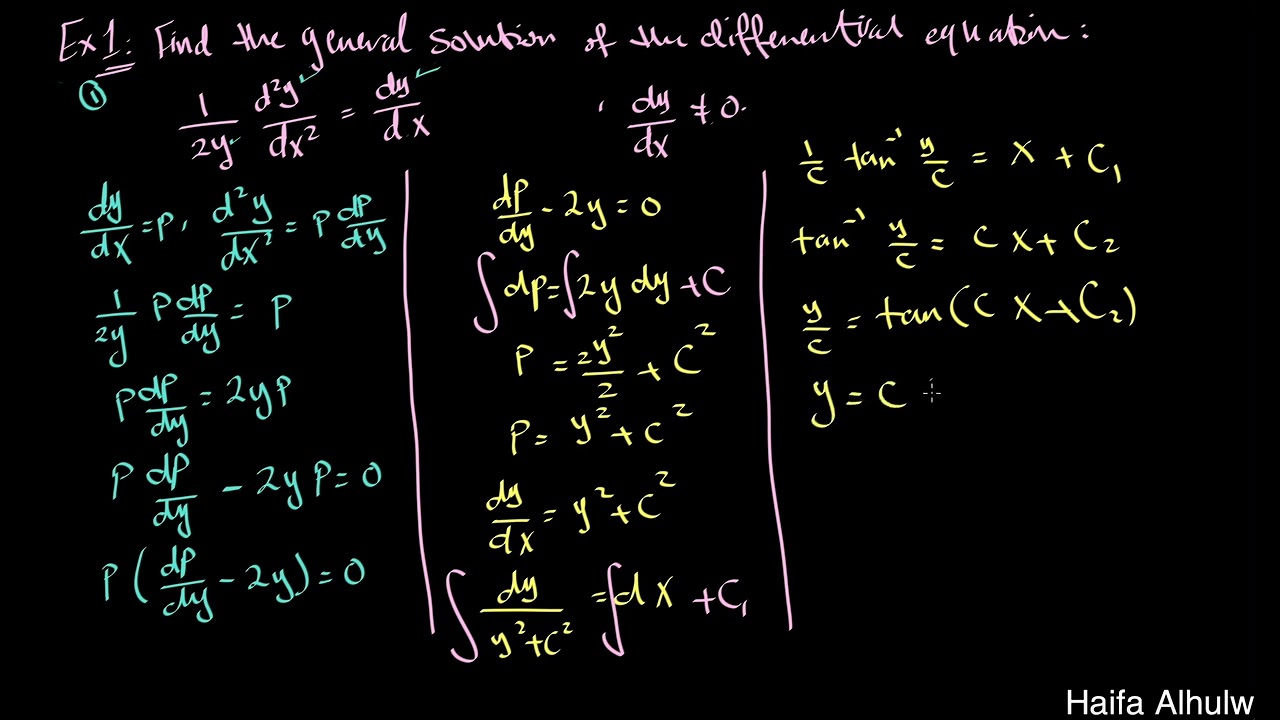 Ex1: Find the general solution of the differential equation:
① 1/2y d²y/dx² = dy/dx , dy/dx ≠ 0.
dy/dx = P, d²y/dx² = P dP/dy
1/2y P dP/dy = P
P dP/dy = 2yP
P dP/dy - 2yP = 0
P(dP/dy - 2y) = 0
dP/dy - 2y = 0
∫dp = ∫2y dy + C
P = 2y²/2 + C²
P = y² + c²
dy/dx = y² + C²
∫ dy/y²+c² = ∫dx + C₁
1/c tan⁻¹ y/c = x + C₁
tan⁻¹ y/c = cx + C₂
y/c = tan(c x + C₂)
y = c
Haifa Alhulw